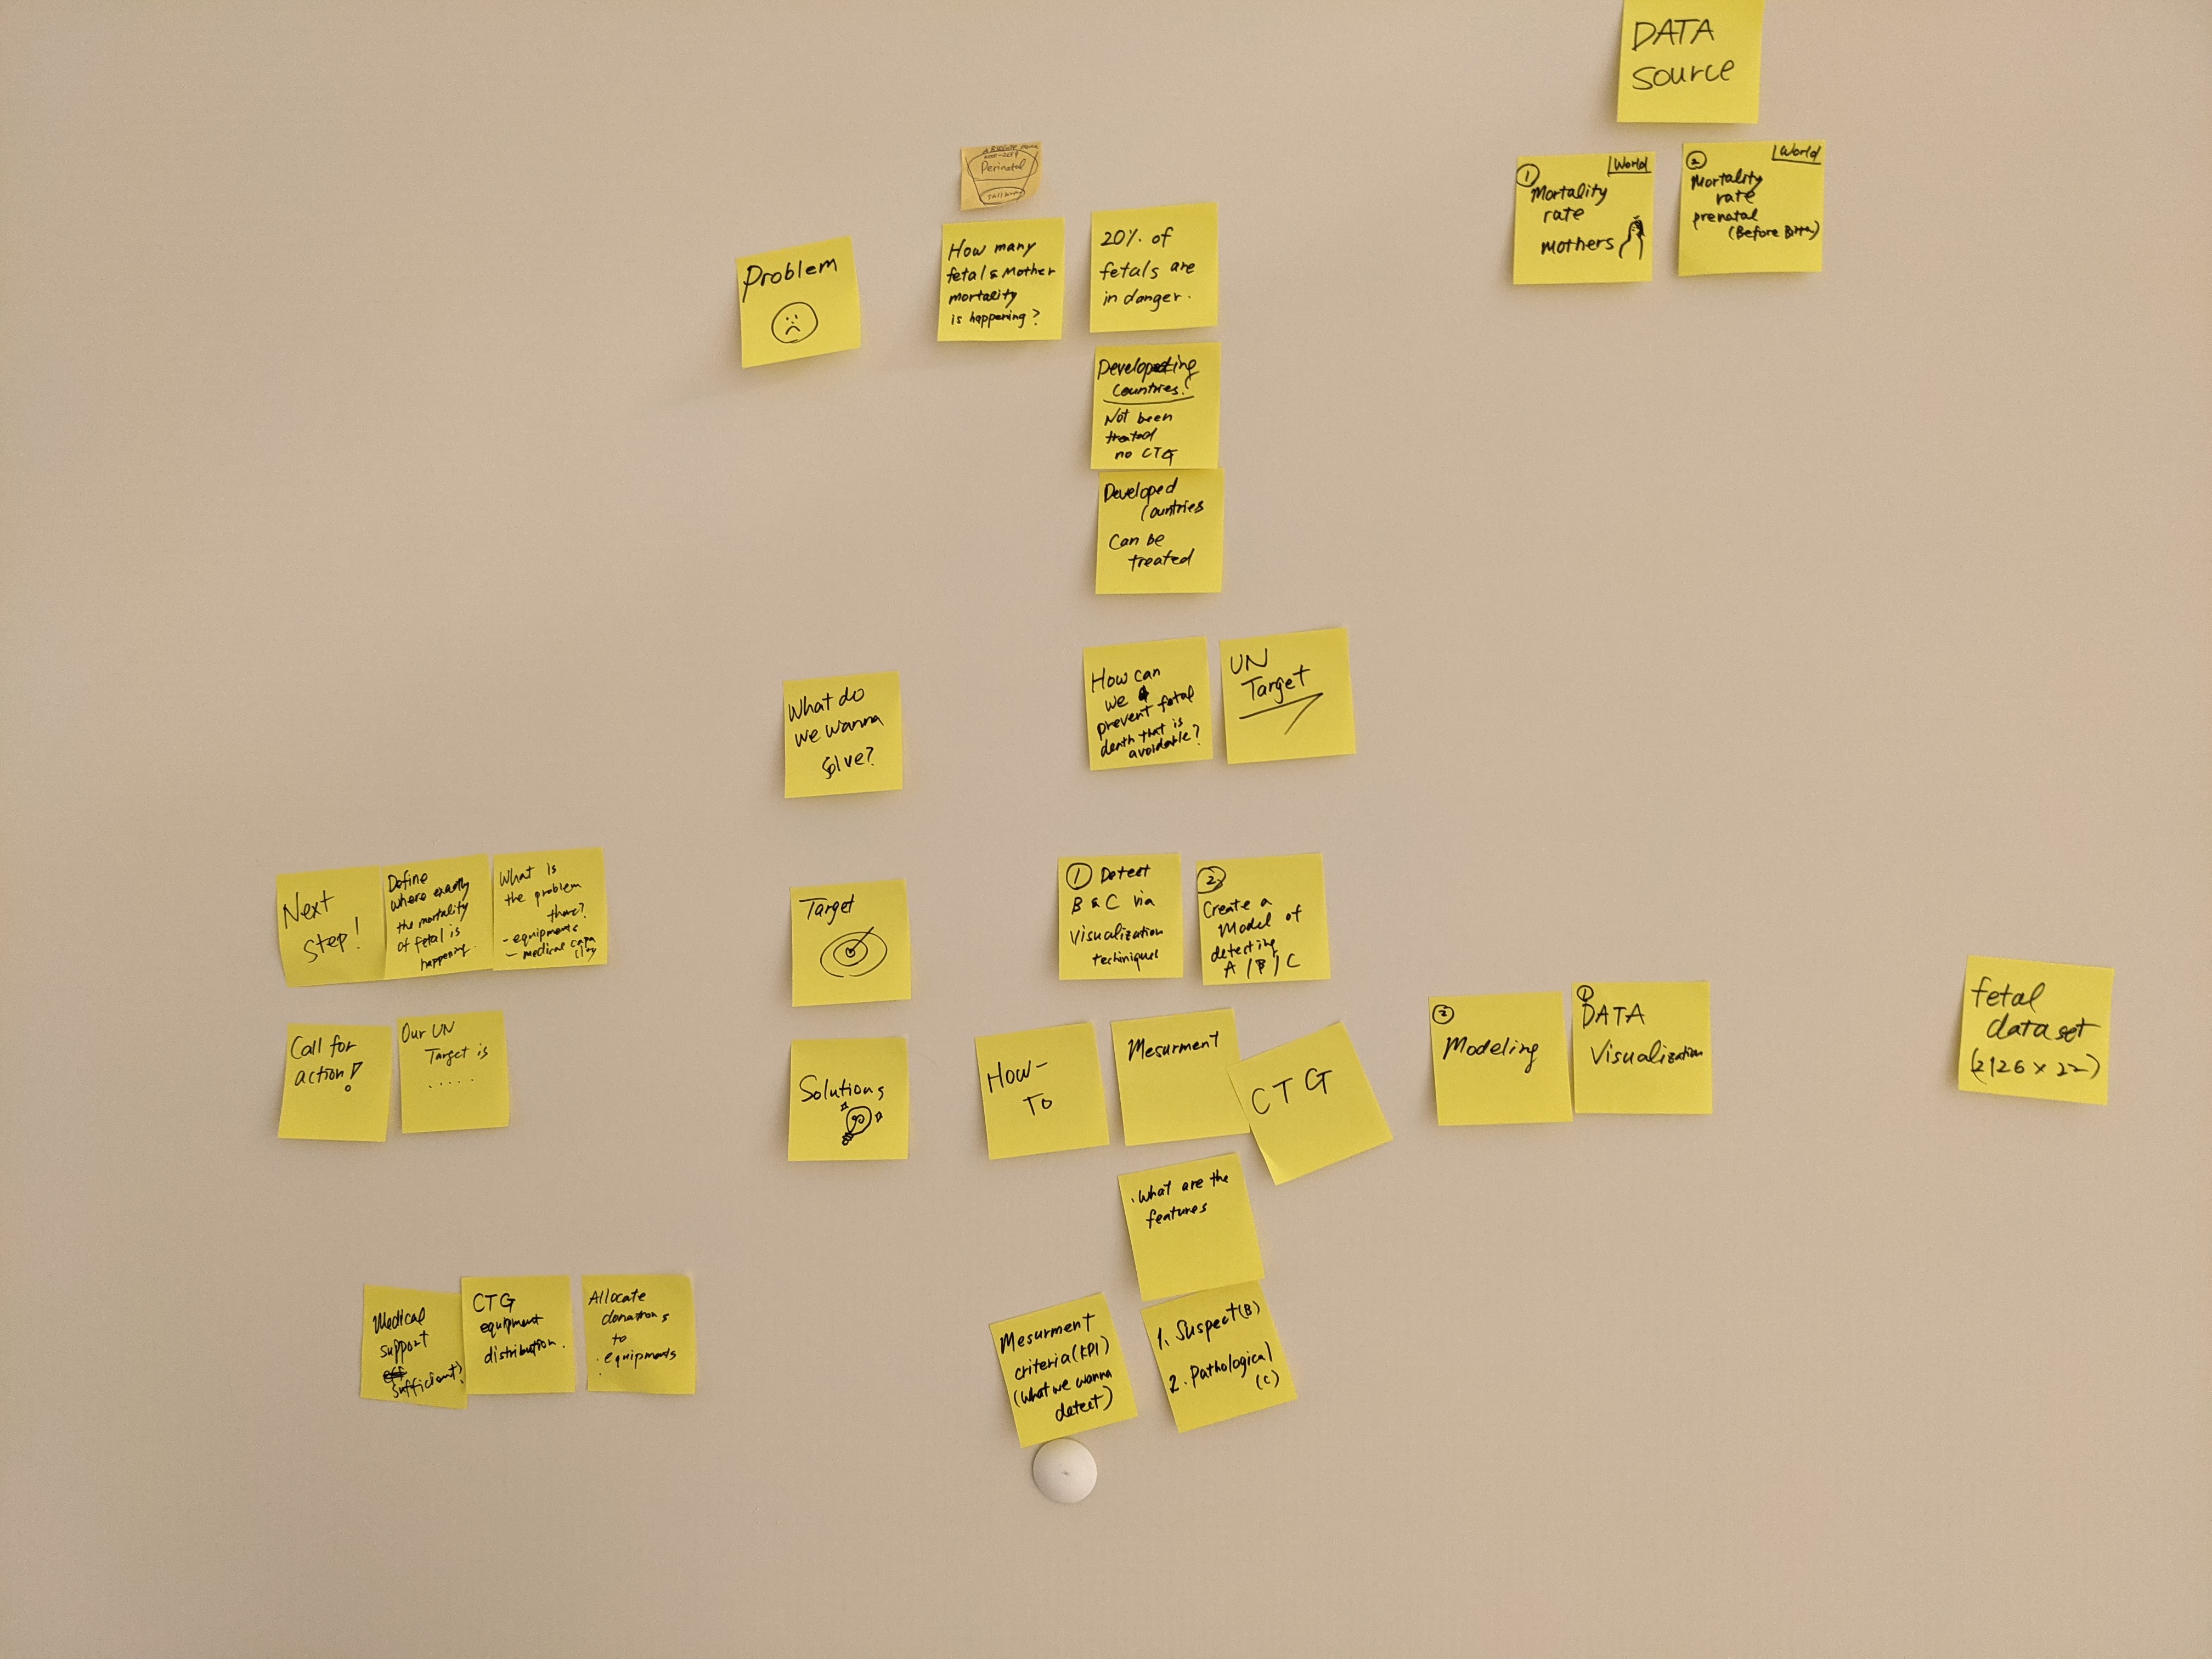 DATA
Source
Perinatal
① Mortality
rate
mothers
World
② World
Mortality
rate
prenatal
(Before Birth)
Problem
How many
fetal & Mother
mortality
is happening?
20% of
fetals are
in danger.
Developing
Countries!
Not been
treated
no CTG
Developed
Countries
Can be
treated
What do
we wanna
solve?
How can
we
prevent fatal
death that is
avoidable?
UN
Target
Next
step!
Define
where exactly
the mortality
of fetal is
happening.
What is
the problem
there?
- equipments
- medical capa
city
Target
① Detect
B & C via
Visualization
techniques
②
Create a
Model of
detecting
A / B / C
Call for
action!
Our UN
Target is
.....
Solutions
How-
To
Mesurment
CTG
②
Modeling
①
DATA
Visualization
fetal
dataset
(2126 x 22)
. What are the
features
Medical
support
sufficient?
CTG
equipment
distribution.
Allocate
donations
to
equipments
Mesurment
criteria (KPI)
(What we wanna
detect)
1. Suspect (B)
2. Pathological
(C)